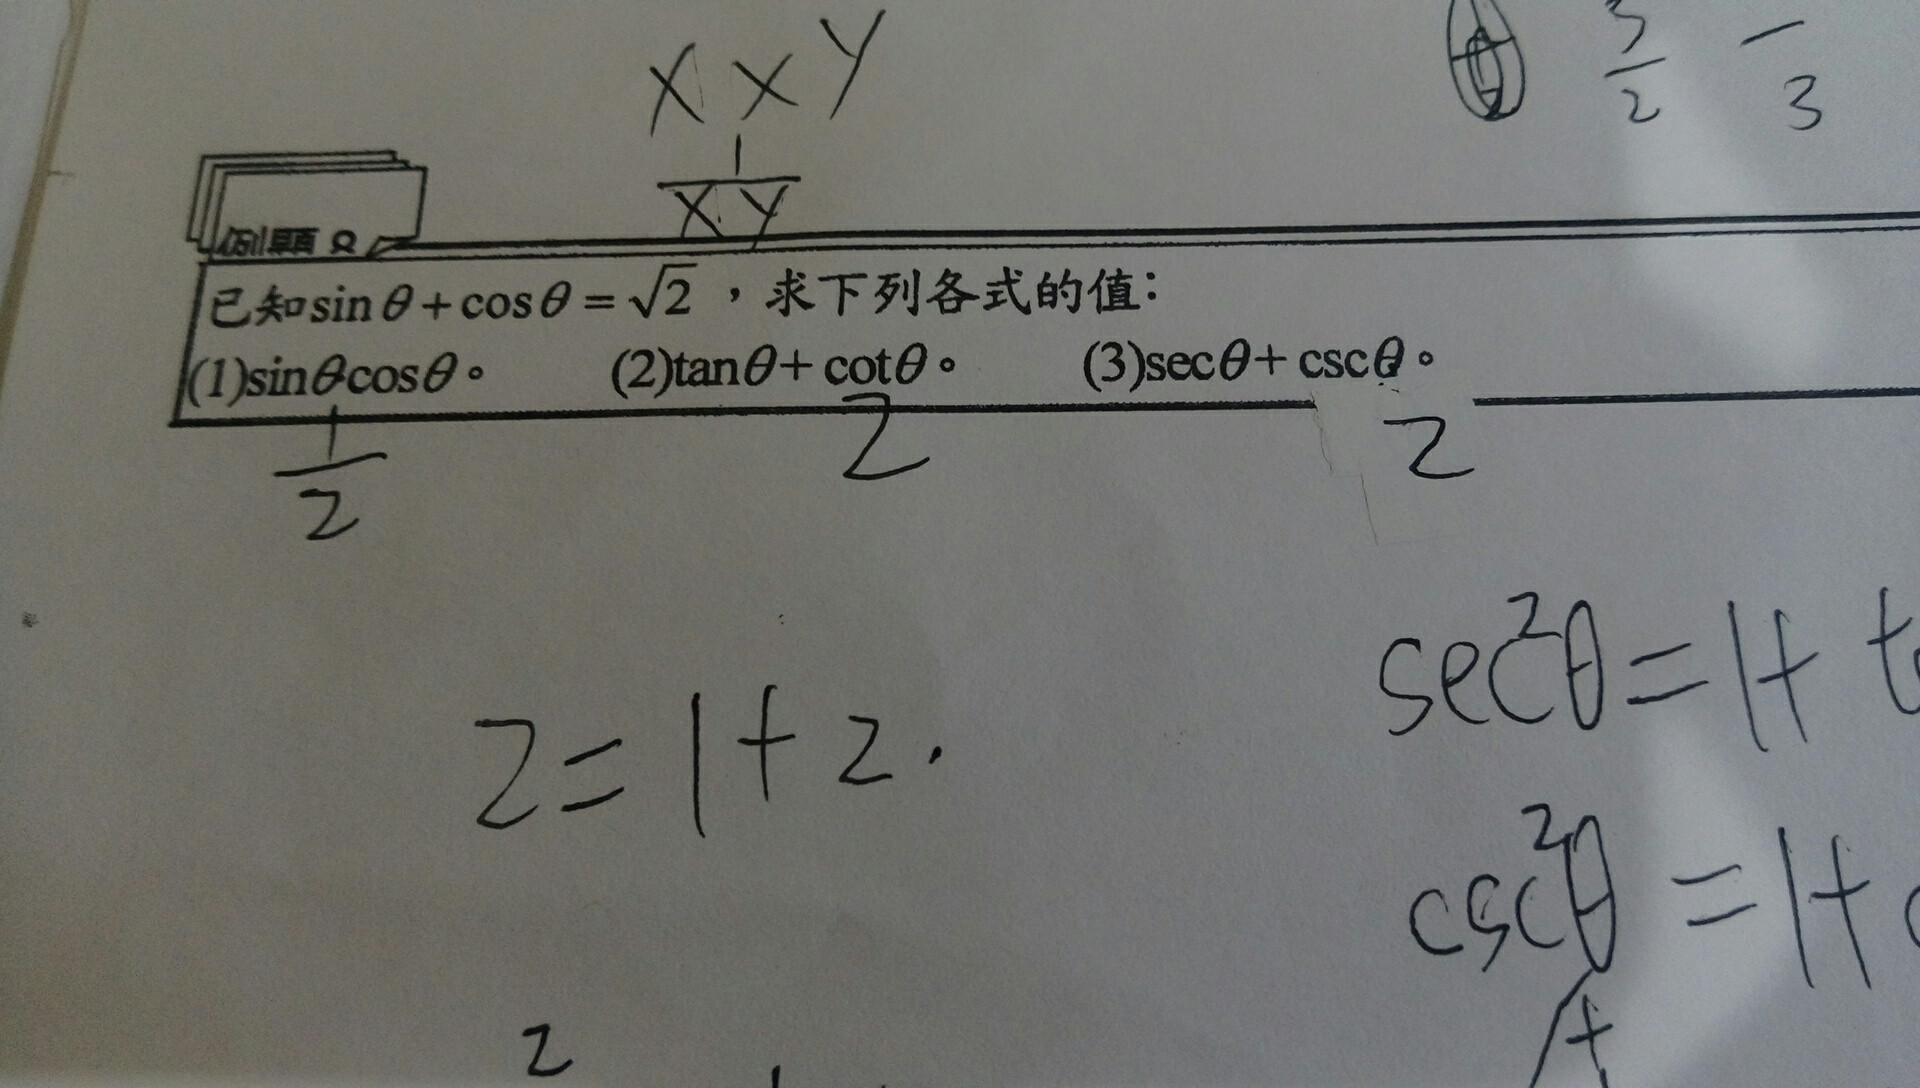 X x Y
1/XY
3/2 - 3
例題
已知sinθ+cosθ=√2，求下列各式的值：
(1)sinθcosθ。 (2)tanθ+cotθ。 (3)secθ+cscθ。
1/2 2 2
sec²θ=1+
2=1+2.
csc²θ=1+
2